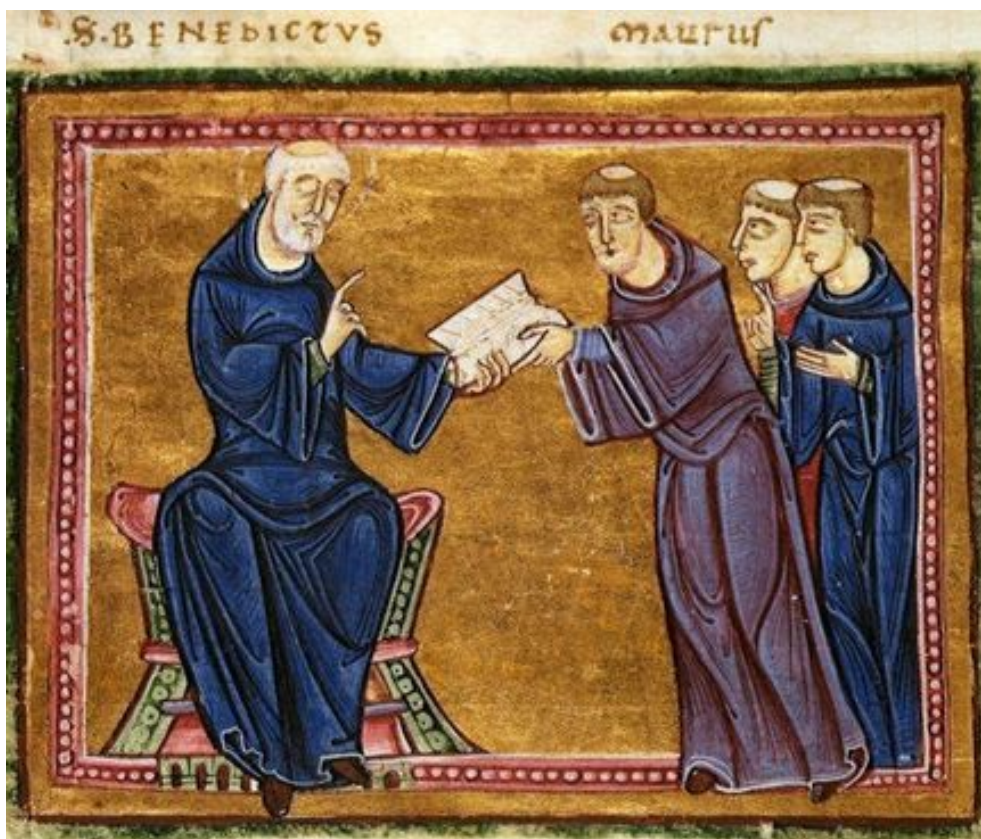 .S. BENEDICTVS maurus